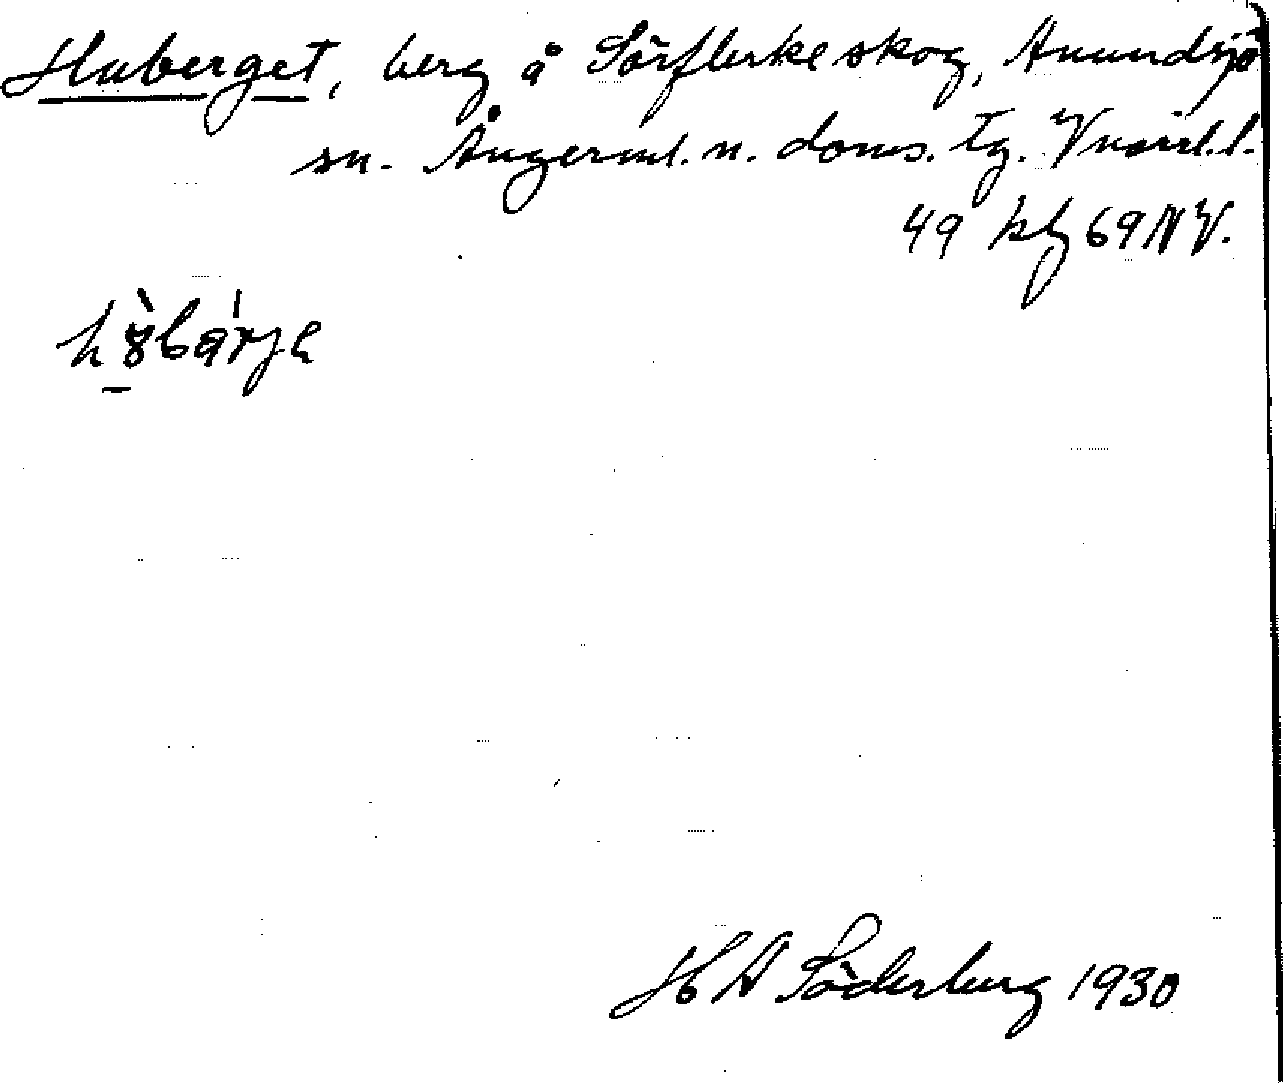 Huberget, berg å Sörflerke skog, Anundsjö
sn. Ångerml. n. doms. tg. Vnorrl. l.
49 kbl 69 NV.
H A Söderberg 1930